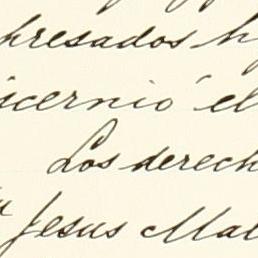 presados h
iscernió el
Los derech
Jesus Mal